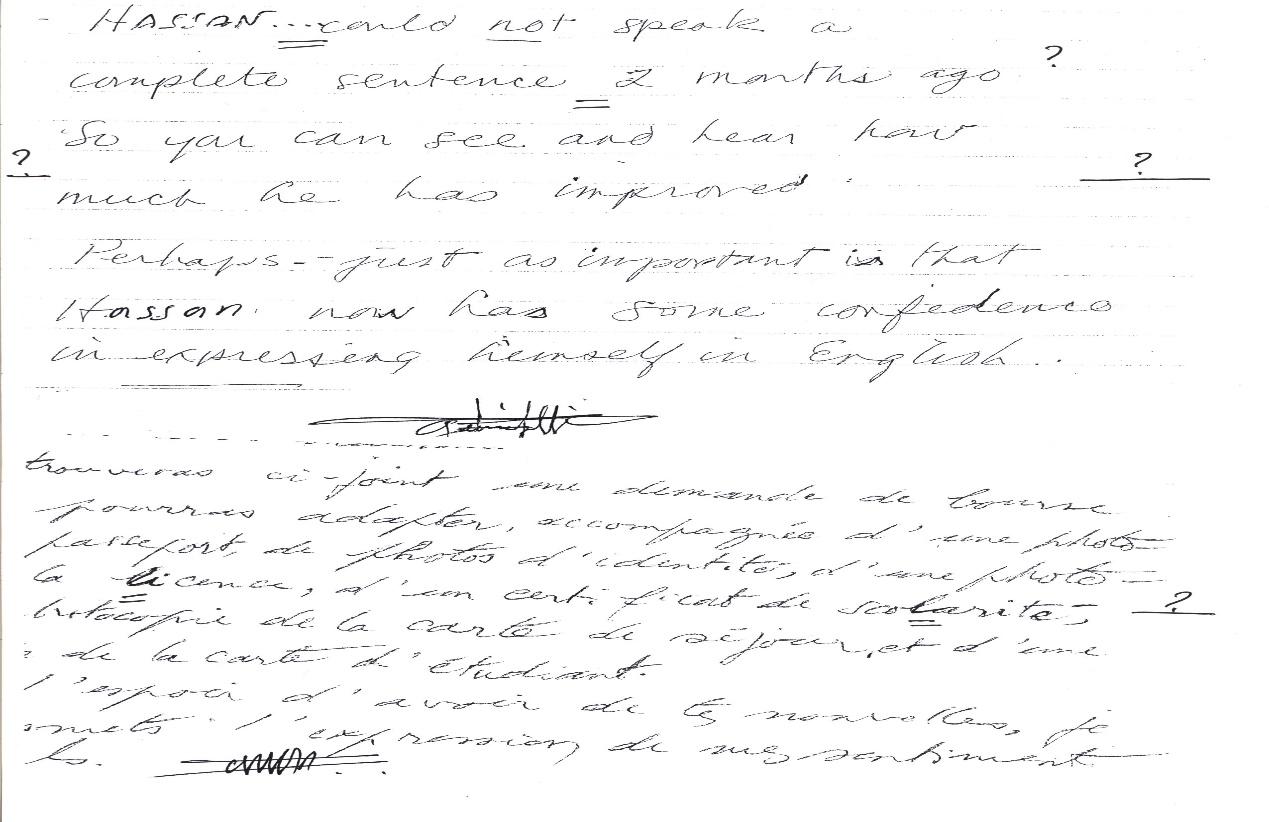 HASSAN...could not speak a
complete sentence 2 months ago ?
So you can see and hear how
? much he has improved. ?
Perhaps -- just as important is that
Hassan. now has some confedence
in expressing himself in English..
trouveras ci-joint une demande de bourse
pourras adapter, accompagnée d'une photo-
passeport, de photos d'identité, d'une photo-
la licence, d'un certificat de scolarité, ?
hotocopie de la carte de séjour, et d'une
de la carte d'étudiant.
l'espoir d'avoir de tes nouvelles, je
omets l'expression de mes sentiment
ls.